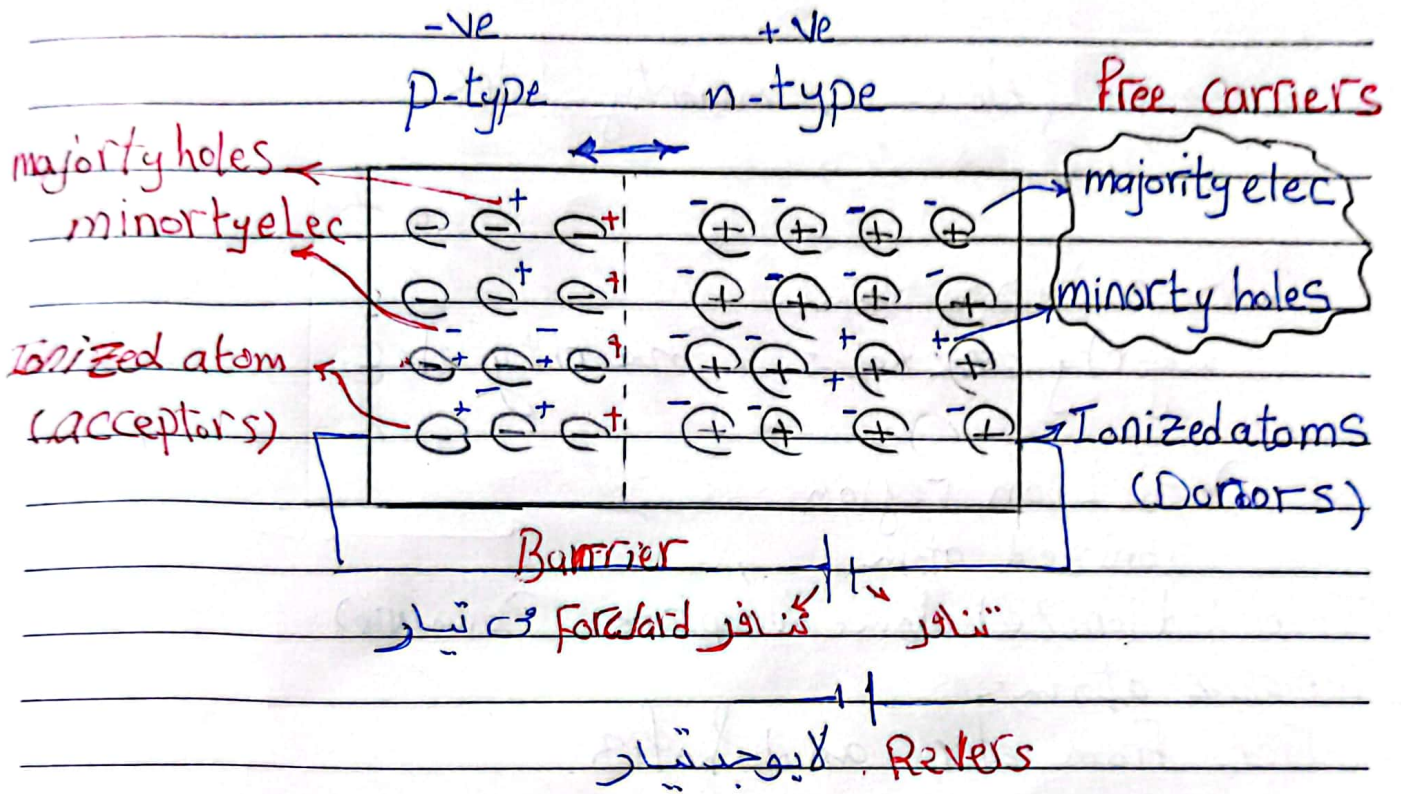 -ve + ve
p-type n-type Free Carriers
majorty holes
majority elec
minorty elec
minorty holes
Ionized atom
(acceptors)
Ionized atoms
(Donors)
Barrier
تنافر تنافر Forward في تيار
لا يوجد تيار . Revers